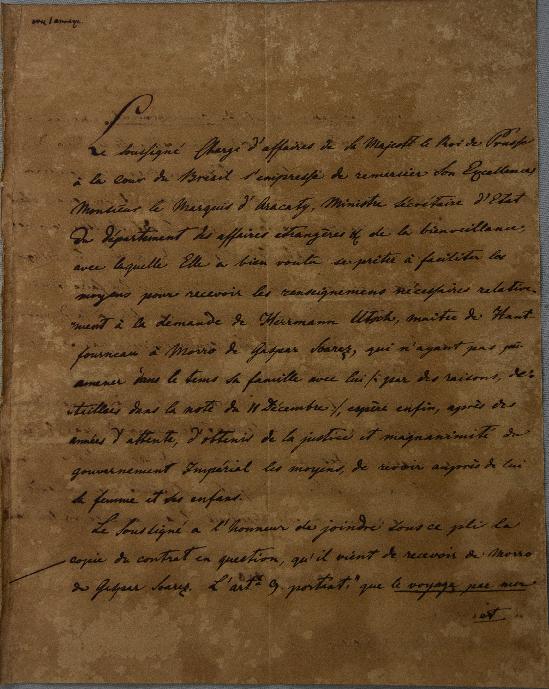 avec 1 annexe.
Le Soussigné Chargé d'affaires de Sa Majesté le Roi de Prusse
à la cour du Brésil s'empresse de remercier Son Excellence
Monsieur le Marquis d'Aracaty, Ministre Sécretaire d'Etat
du département des affaires étrangères & de la bienveillance,
avec laquelle Elle a bien voulu se prêter à faciliter les
moyens pour recevoir les renseignemens nécessaires relative-
ment à la demande de Herrmann Utsch, maître de Haut
fourneau à Morro de Gaspar Soarez, qui n'ayant pas pu
amener dans le tems sa famille avec lui /: par des raisons, dé-
taillées dans la note du 11 Décembre :/, espère enfin, après des
années d'attente, d'obtenir de la justice et magnanimité du
gouvernement Impérial les moyins, de revoir auprès de lui
sa femme et ses enfans.
Le Soussigné a l'honneur de joindre sous ce pli la
copie du contrat en question, qu'il vient de recevoir de Morro
de Gaspar Soarez. L'art. 9. portant, "que le voyage par mer
et